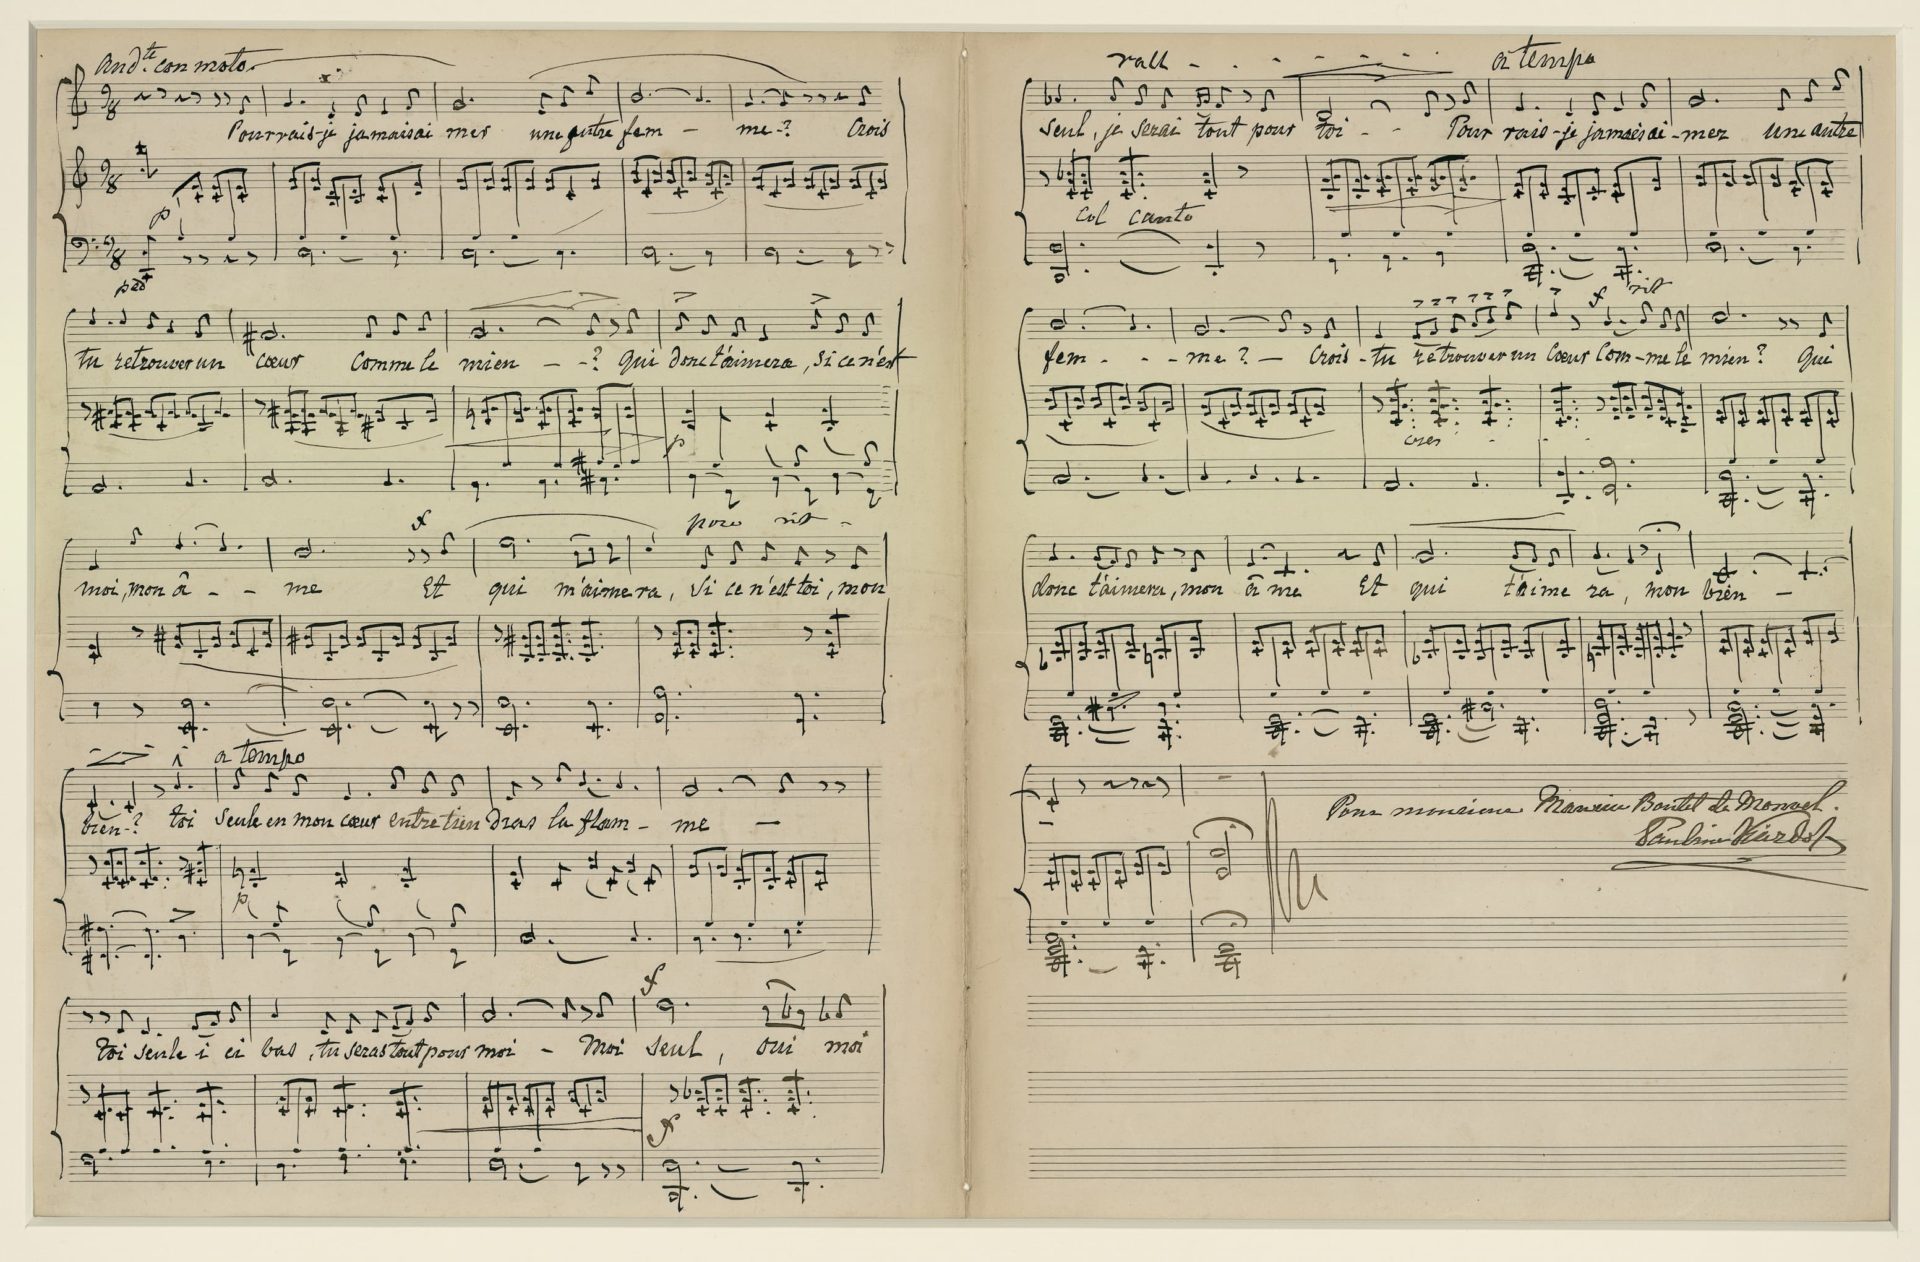 And.te con moto.
Pourrais-je jamais ai mer une autre fem - me-? Crois
p
ped
tu retrouver un cœur Comme le mien - -? Qui donc t'aimera, si ce n'est
p
f poco rit -
moi, mon â - - me Et qui m'aimera, si ce n'est toi, mon
a tempo
bien-? toi seule en mon cœur entretien dras la flam - me -
p
f
toi seule i ci bas, tu seras tout pour moi - Moi seul, oui moi
f
rall - - - - - a tempo
seul, je serai tout pour toi - - Pour rais-je jamais ai - mer une autre
col canto
f rit
fem - - - me? - Crois-tu retrouver un cœur Com-me le mien? Qui
cres - - -
donc t'aimera, mon â me Et qui t'aime ra, mon bien -
-
Pour monsieur Maurice Boutet de Monvel.
Pauline Viardot